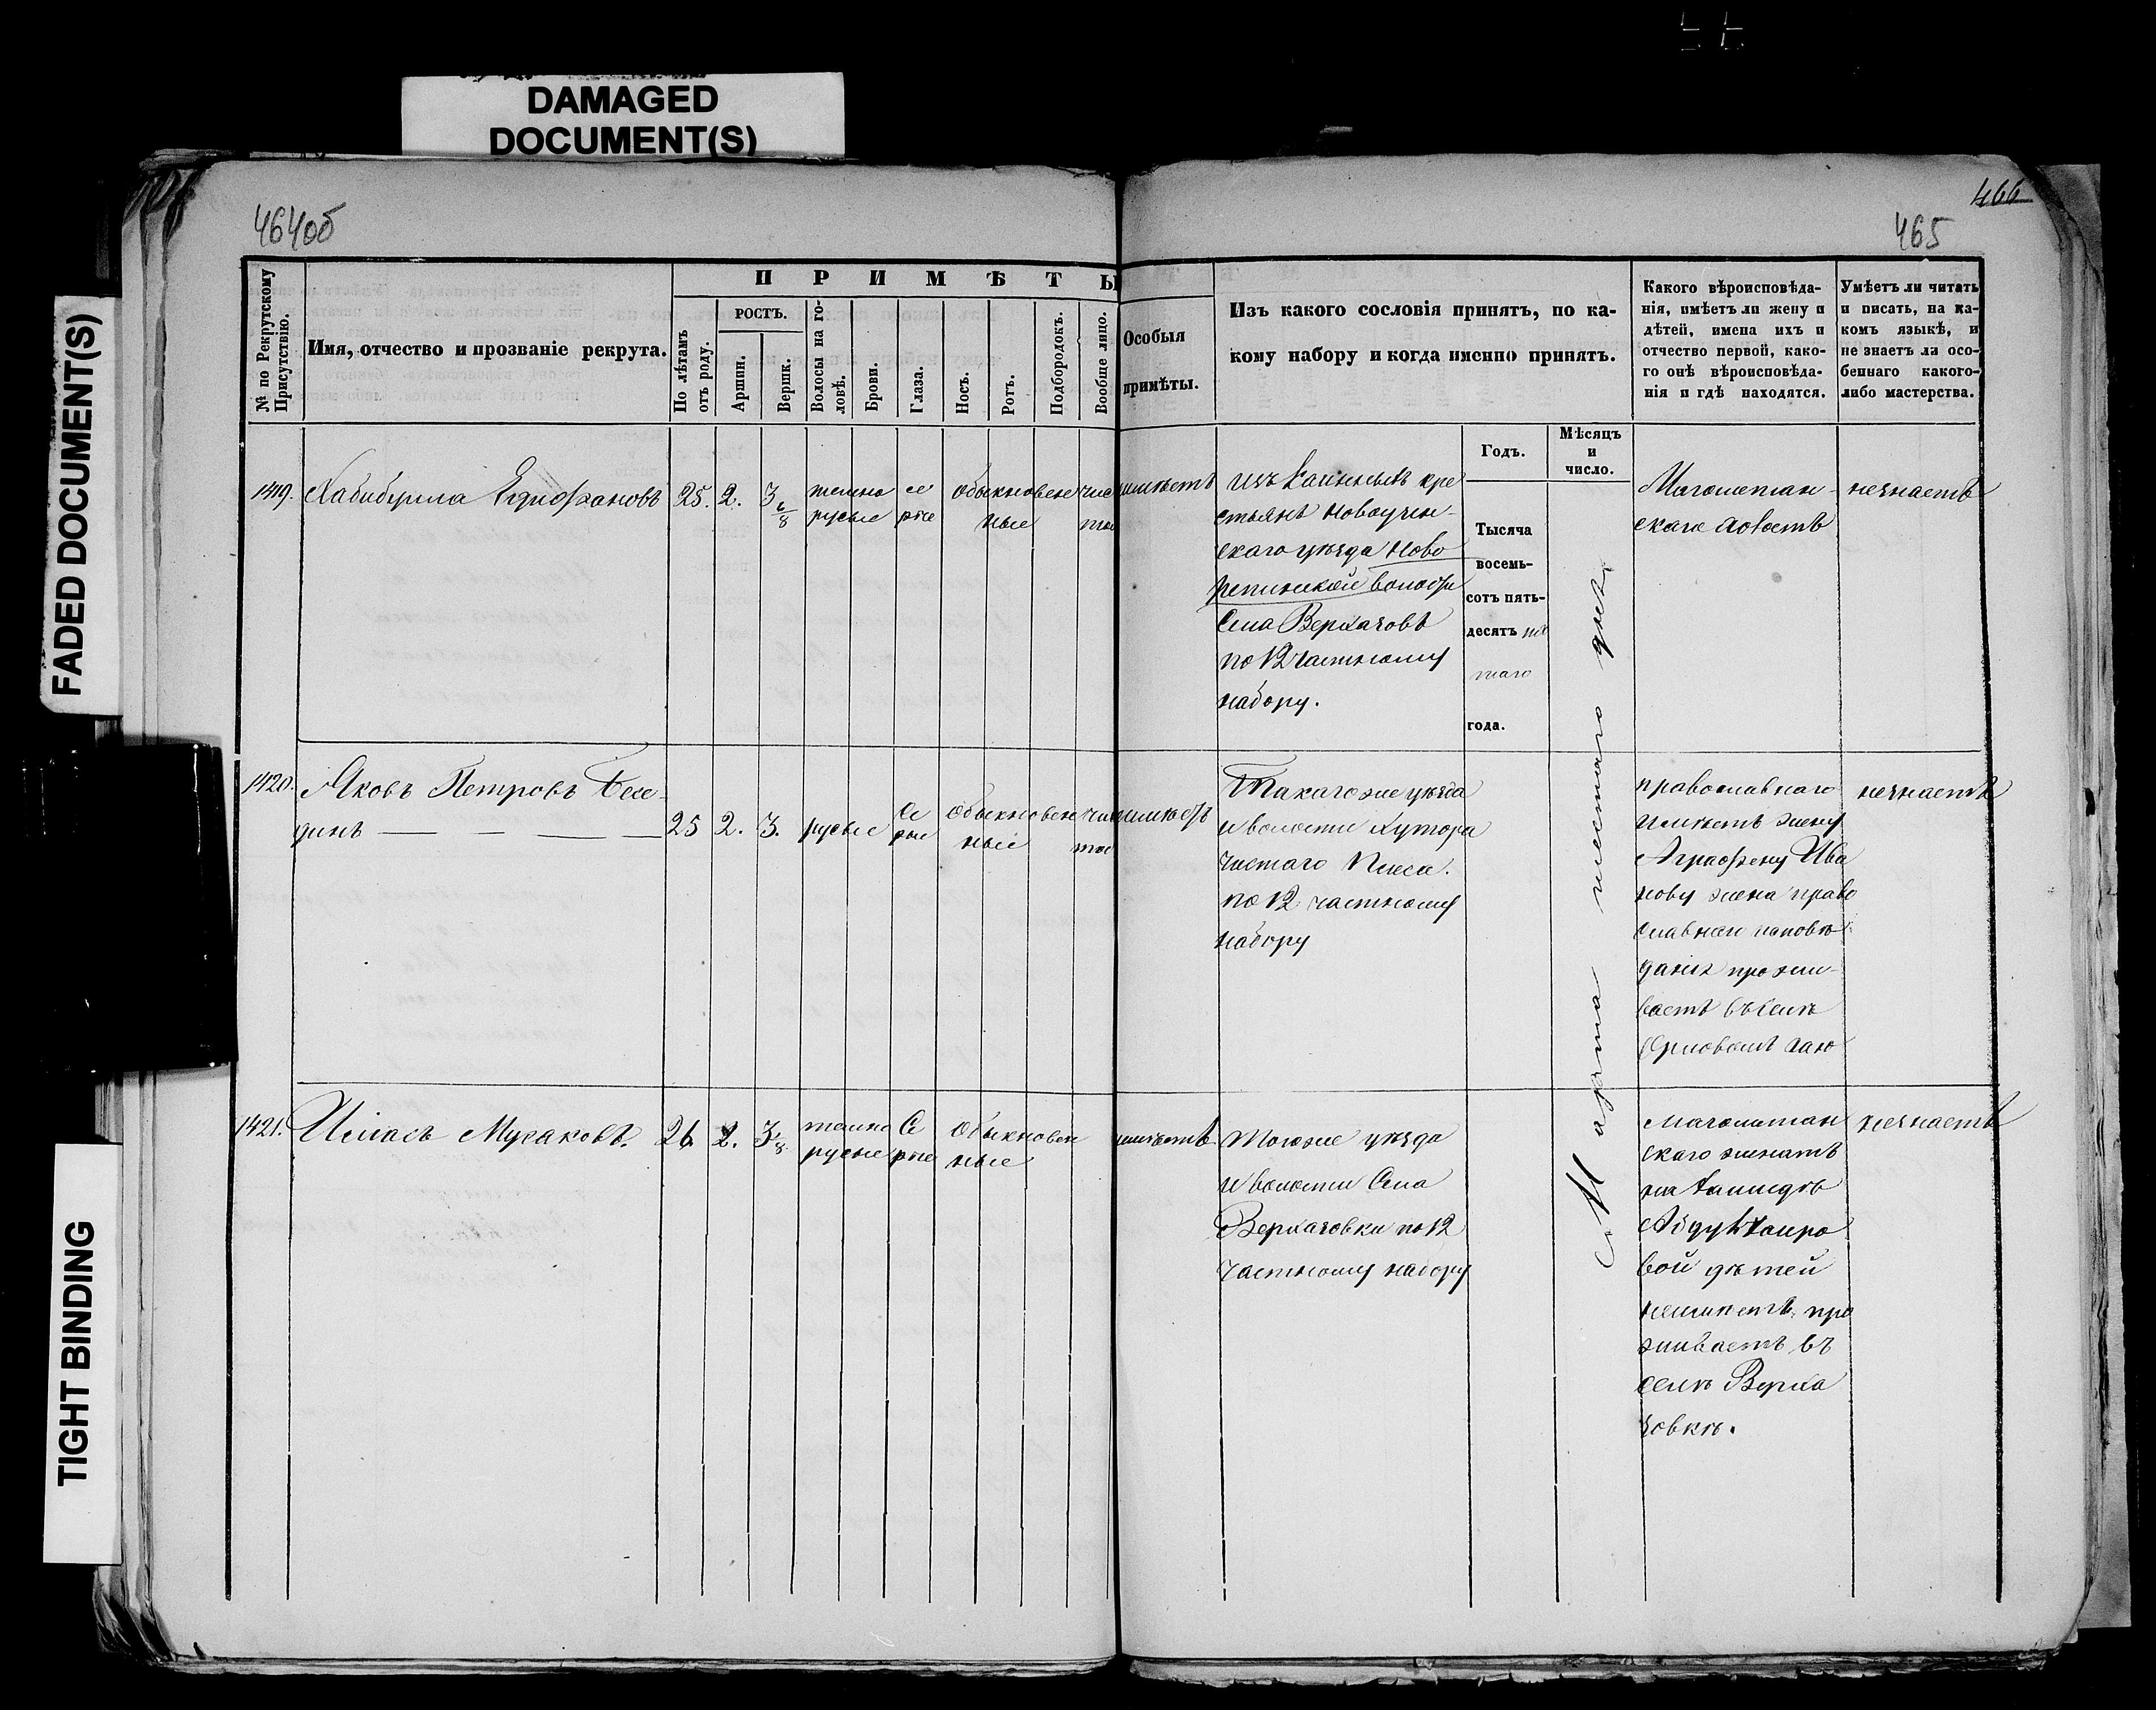 DAMAGED
DOCUMENT(S)
FADED DOCUMENT(S)
TIGHT BINDING
464об
466
465
№ по Рекрутскому
Присутствію.
Имя, отчество и прозваніе рекрута.
ПРИМѢТЫ
По лѣтамъ
отъ роду.
РОСТЪ.
Аршин.
Вершк.
Волосы на го-
ловѣ.
Брови.
Глаза.
Носъ.
Ротъ.
Подбородокъ.
Вообще лицо.
Особыя
примѣты.
Изъ какого сословія принятъ, по ка-
кому набору и когда именно принятъ.
Какого вѣроисповѣда-
нія, имѣетъ ли жену и
дѣтей, имена ихъ и
отчество первой, како-
го онѣ вѣроисповѣда-
нія и гдѣ находятся.
Умѣетъ ли читать
и писать, на ка-
комъ языкѣ, и
не знаетъ ли осо-
беннаго какого-
либо мастерства.
Годъ.
Мѣсяцъ
и
число.
1419.
25. 2. 3 6/8
темно
русые
се
рые
Обыкновен
ные
чис
тое
неимѣетъ
изъ казенныхъ кре
стьянъ Новоузен-
скаго уѣзда Ново
репинской волости
Села
по 12 частному
набору.
Тысяча
восемь-
сотъ пять-
десятъ пя
таго
года.
Марта шестаго дня
Магометан-
скаго холостъ
незнаетъ
1420.
Яковъ Петровъ Бесе-
динъ
25 2. 3.
русые
Се
рые
Обыкновен
ные
чис
тое
неимѣетъ
Такагоже уѣзда
и волости Хутора
чистаго Плеса.
по 12 частному
набору
православнаго
имѣетъ жену
Аграфену Ива
нову жена право
славнаго исповѣ
данія прожи-
ваетъ въ селѣ
Орловомъ гаю
незнаетъ
1421.
26 2. 3/8
темно
русые
Се
рые
Обыкновен
ные
неимѣетъ
Тогоже уѣзда
и волости Села
по 12
частному набору
Магометан
скаго женатъ
на
вой дѣтей
неимѣетъ, про
живаетъ въ
селѣ
незнаетъ